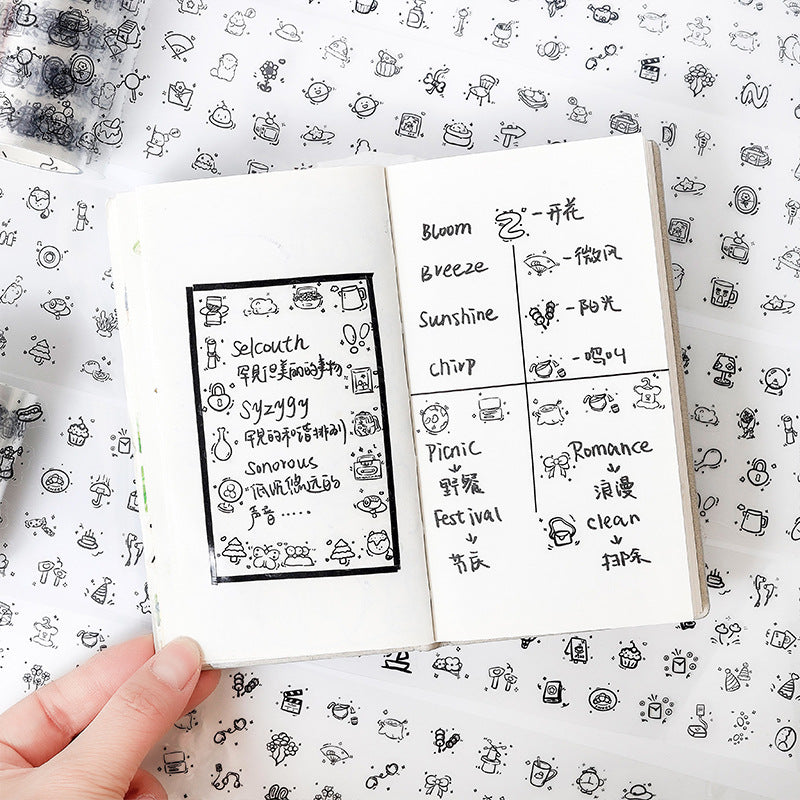 Selcouth
罕见但美丽的事物
Syzygy
罕见的和谐排列
Sonorous
低沉悠远的
声音......
Bloom -开花
Breeze -微风
Sunshine -阳光
Chirp -鸣叫
Picnic
↓
野餐
Festival
↓
节庆
Romance
↓
浪漫
clean
↓
扫除